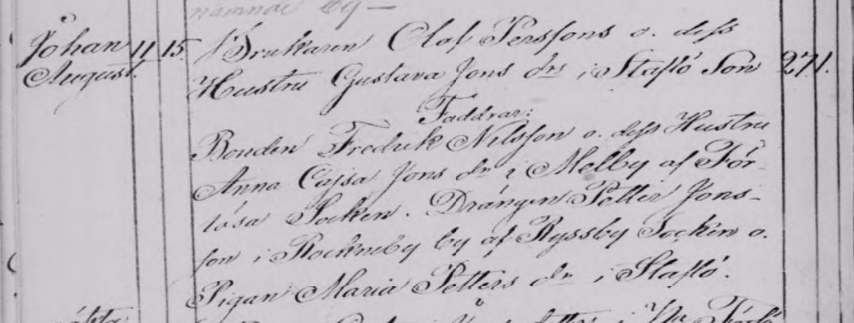 nämnde by —
Johan 11. 15. Brukaren Olof Perssons o. dess
August. Hustru Gustava Jons dr. i Stafló Son 271.
Faddrar:
Bonden Fredrik Nilsson o. dess Hustru
Anna Cajsa Jons dr. i Melby af För-
lösa Socken. Drängen Petter Jons-
son i Rockneby by af Ryssby Socken o.
Pigan Maria Petters dr. i Stafló.